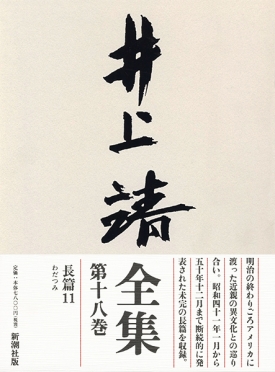 井上靖
明治の終わりごろアメリカに
渡った近親の異文化との巡り
合い。昭和四十一年一月から
五十年十二月まで断続的に発
表された未完の長篇を収録。
全集
第十八巻
長篇11
わだつみ
新潮社版